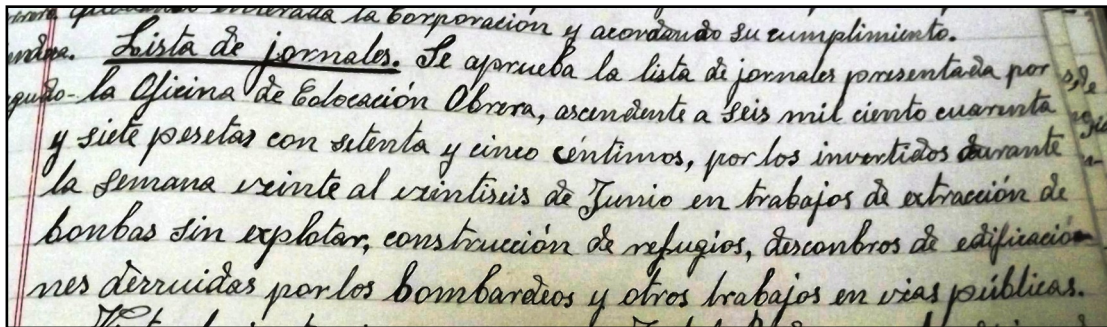 enterada la Corporación y acordando su cumplimiento.
Lista de jornales. Se aprueba la lista de jornales presentada por
la Oficina de Colocación Obrera, ascendente a seis mil ciento cuarenta
y siete pesetas con setenta y cinco céntimos, por los invertidos durante
la semana veinte al veintiseis de Junio en trabajos de extracción de
bonbas sin explotar, construcción de refugios, desconbros de edificacio
nes derruidas por los bombardeos y otros trabajos en vias públicas.